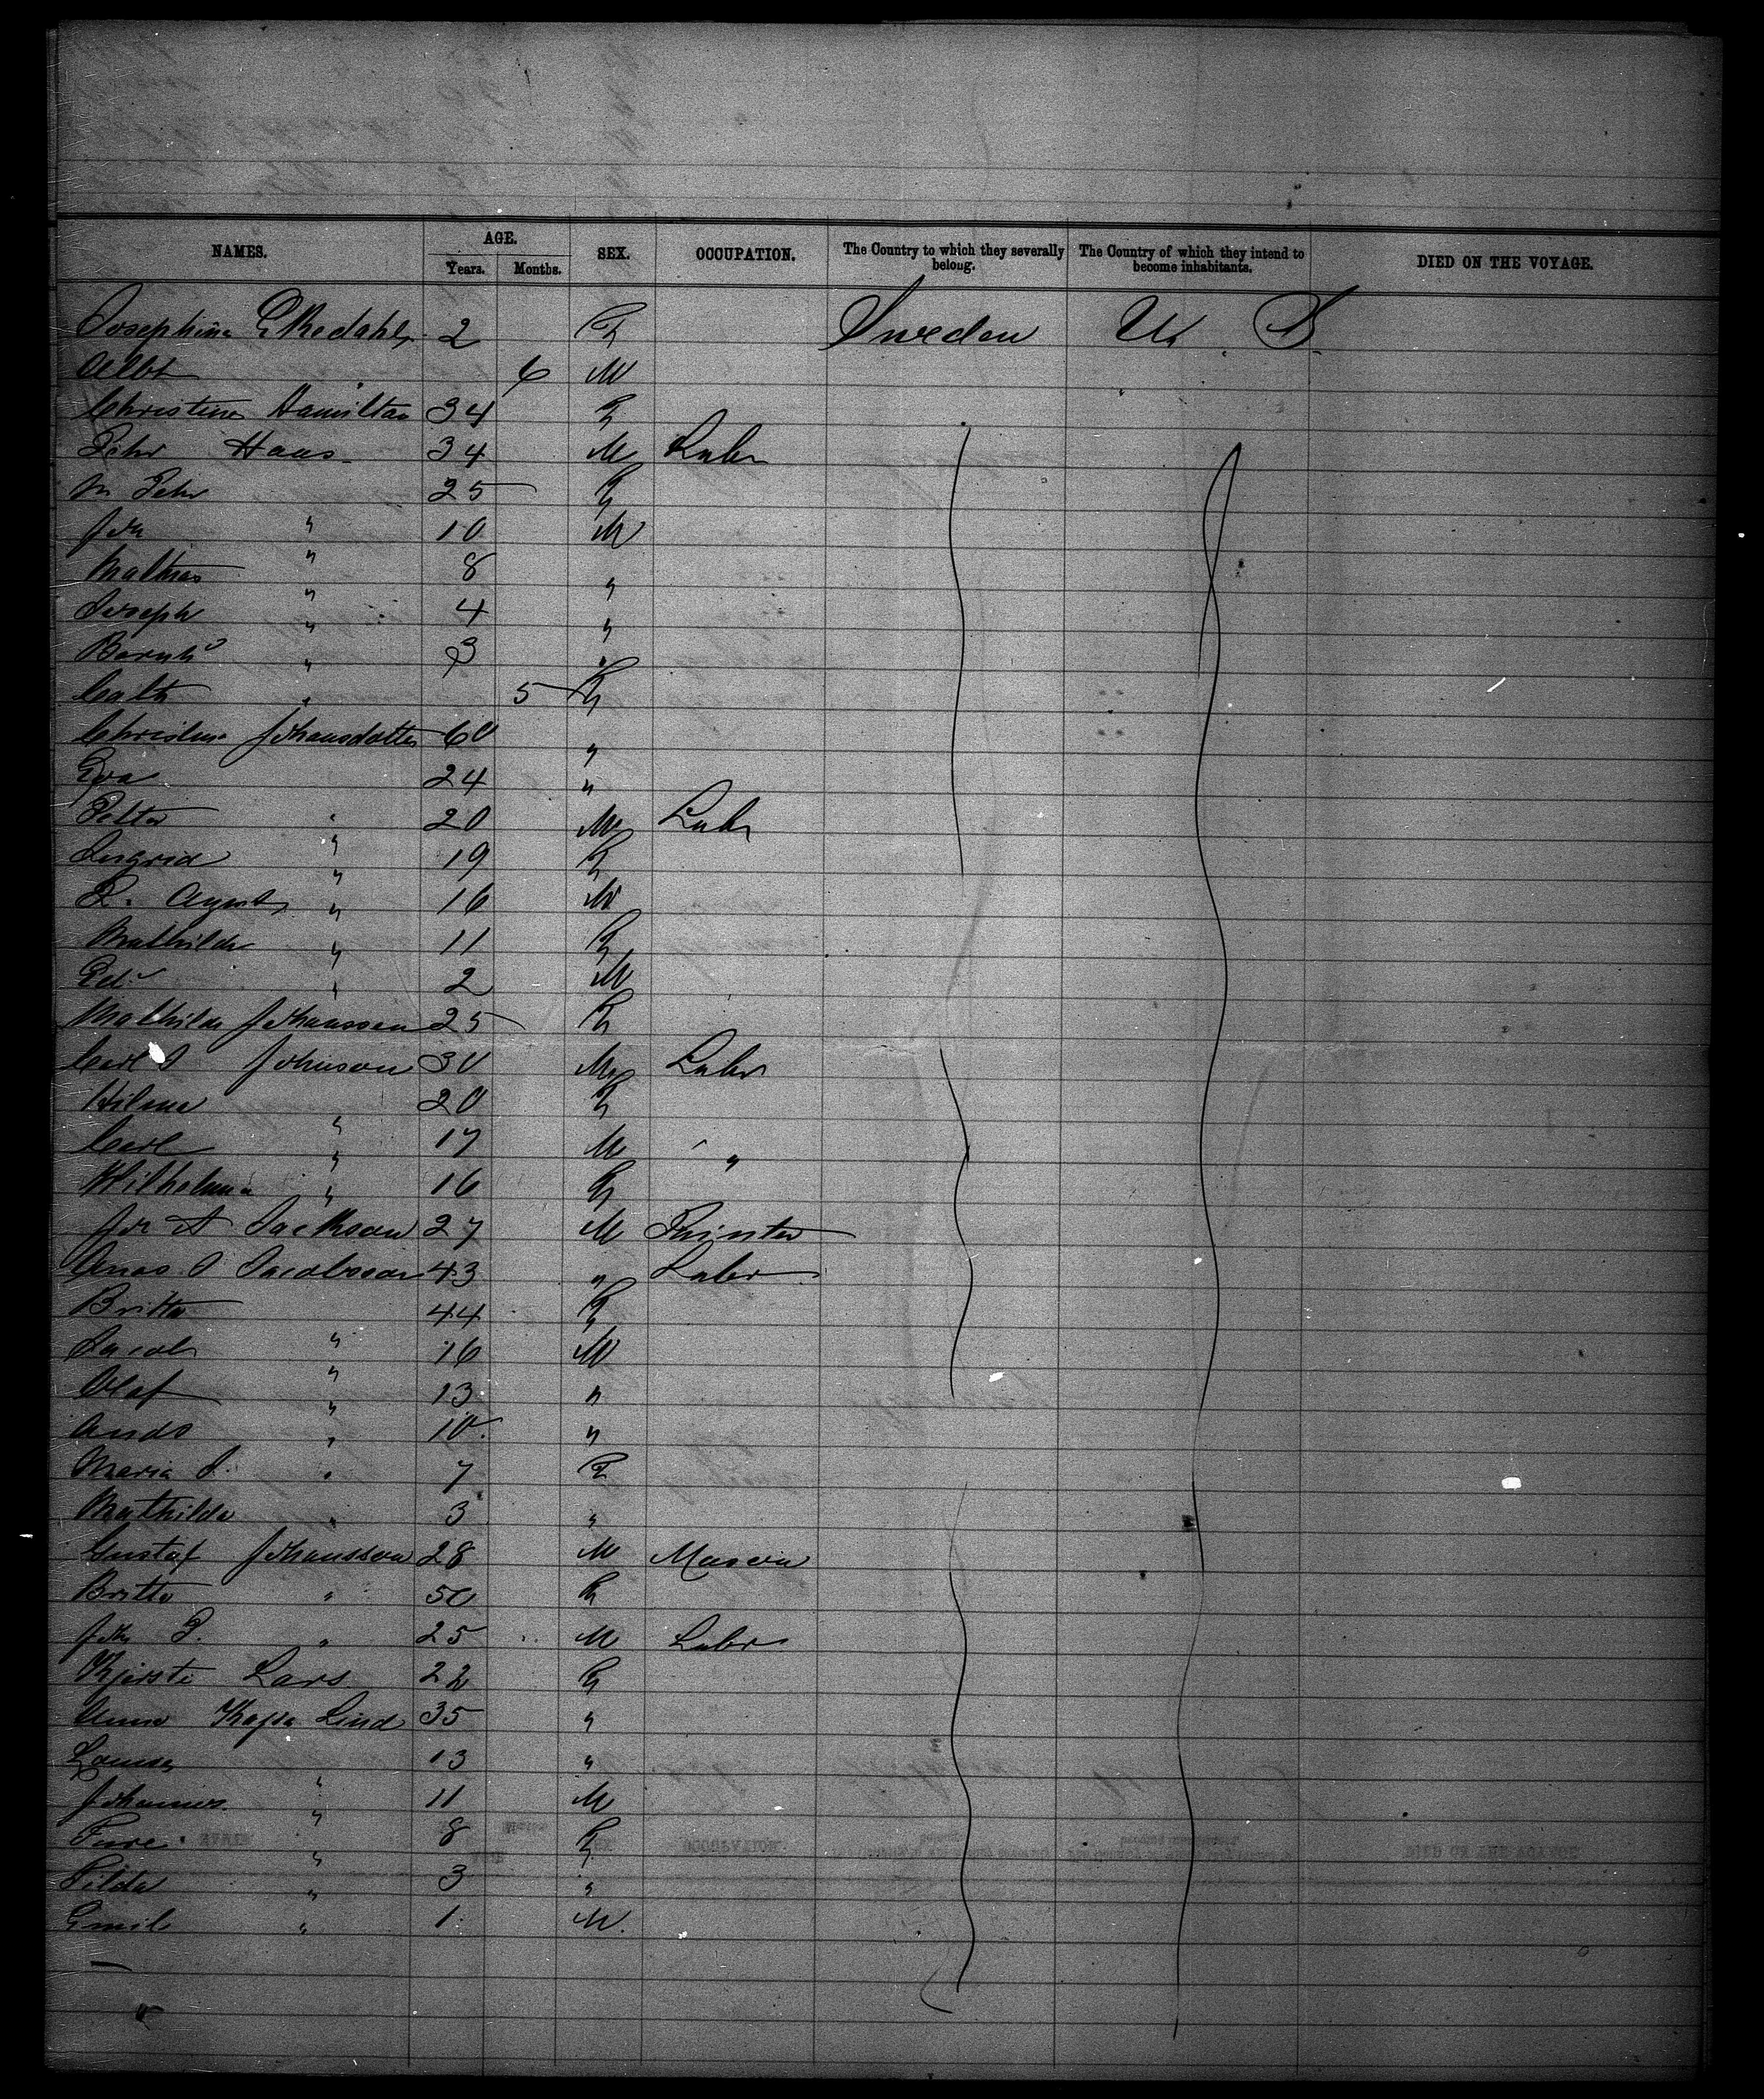 NAMES. AGE. Years. Months. SEX. OCCUPATION. The Country to which they severally belong. The Country of which they intend to become inhabitants. DIED ON THE VOYAGE.
Josephina 2 F Sweden U. S.
Albt 6 M
Christina Hamilton 34 F
Pehr Haas 34 M Labr
Pehr 25 F
Jon " 10 M
Mathias " 8 "
Joseph " 4 "
" 3 "
Cath " 5 F
Christina Johansdotter 60 "
Eva 24 "
Petter " 20 M Labr
Ingrid " 19 F
August " 16 M
Mathilda " 11 F
Edw " 2 M
Mathilda Johansson 25 F
Carl J Johnson 30 M Labr
Hilma " 20 F
Carl " 17 M "
Wilhelmina " 16 F
Jon A Jackson 27 M Printer
Jonas J Jacobsson 43 " Labr
Britta " 44 F
Jacob " 16 M
Olaf " 13 "
Ands " 10 "
Maria J. " 7 F
Mathilda " 3 "
Gustaf Johansson 28 M Mason
Britta " 50 F
Joh P. " 25 M Labr
Kjersti Lars 22 F
Anna Kajsa Lind 35 "
Louisa " 13 "
Johannes " 11 M
Ture " 8 F
Tilda " 3 "
Emil " 1 M.